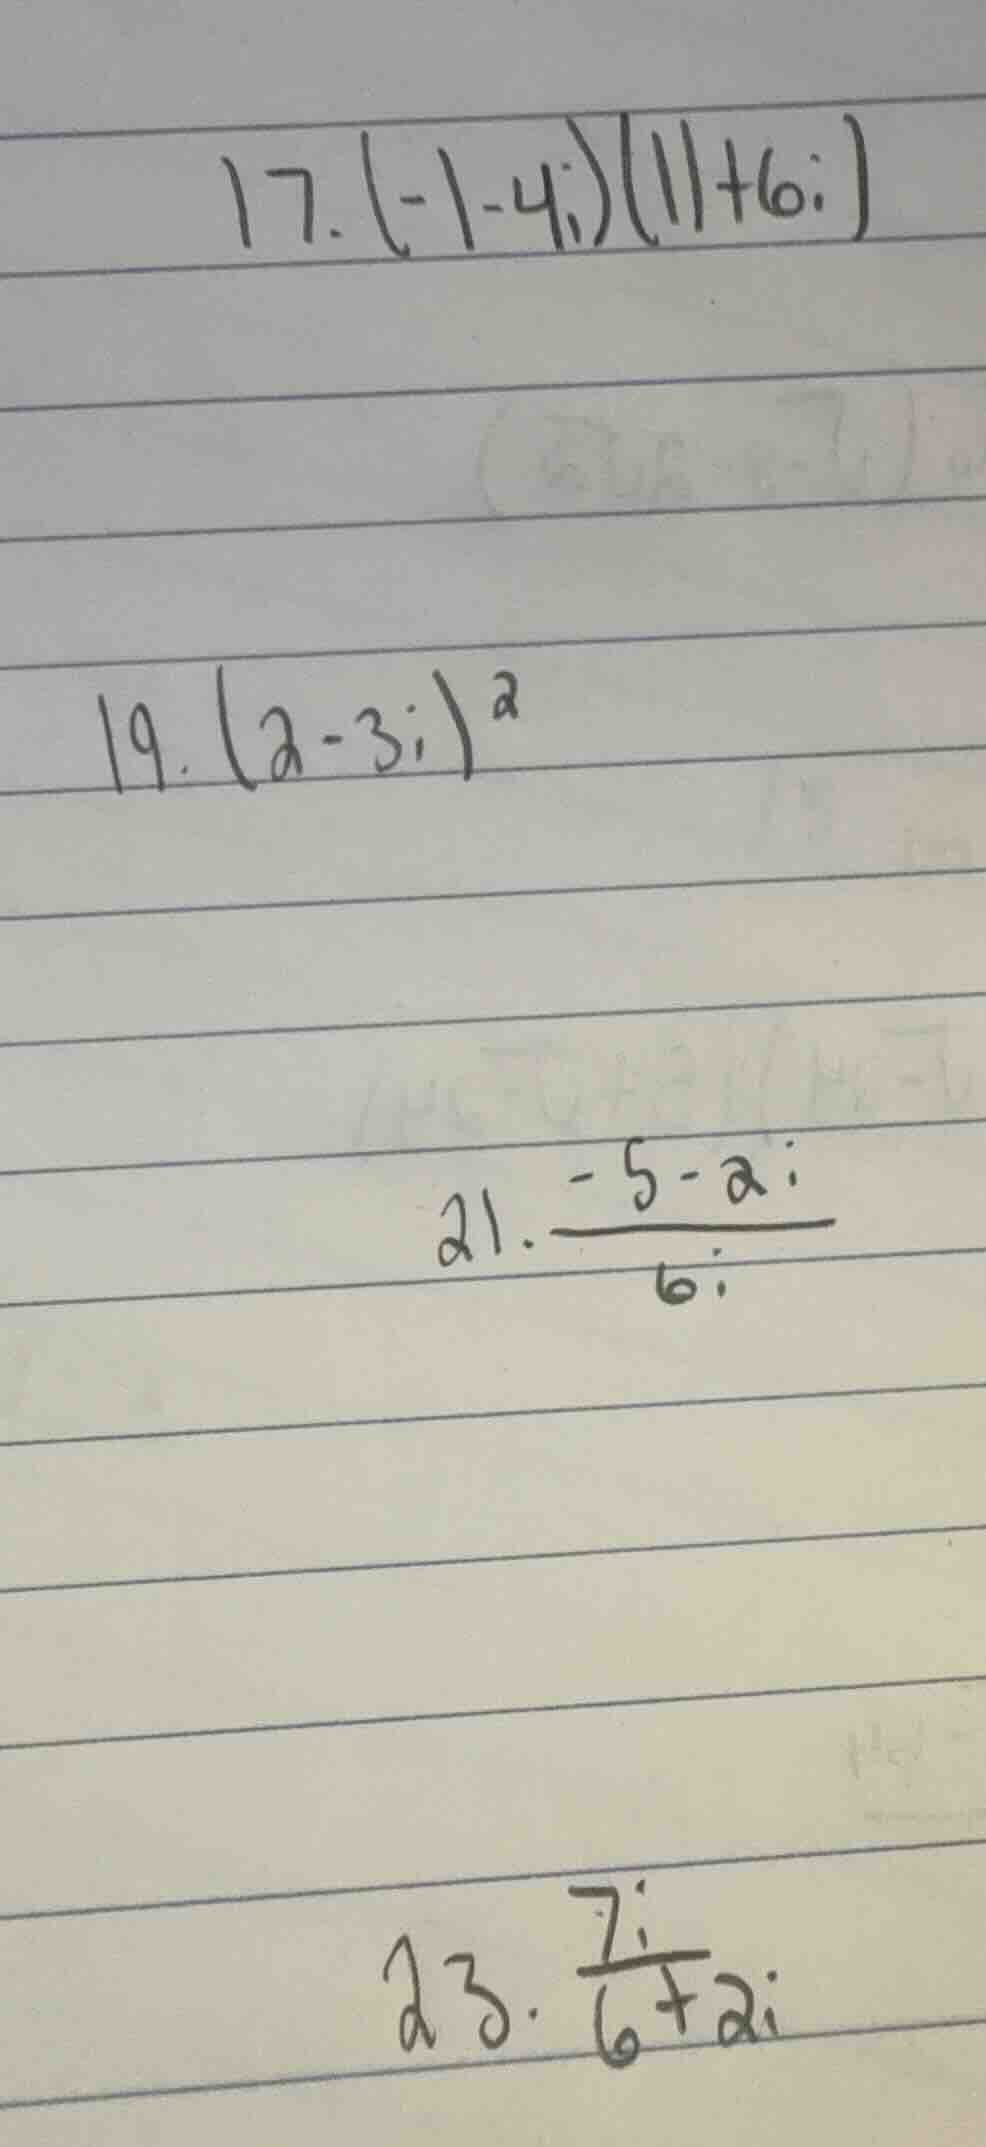 17. (-1-4i)(11+6i)
19. (2-3i)²
21. \frac{-5-2i}{6i}
23. \frac{7i}{6+2i}